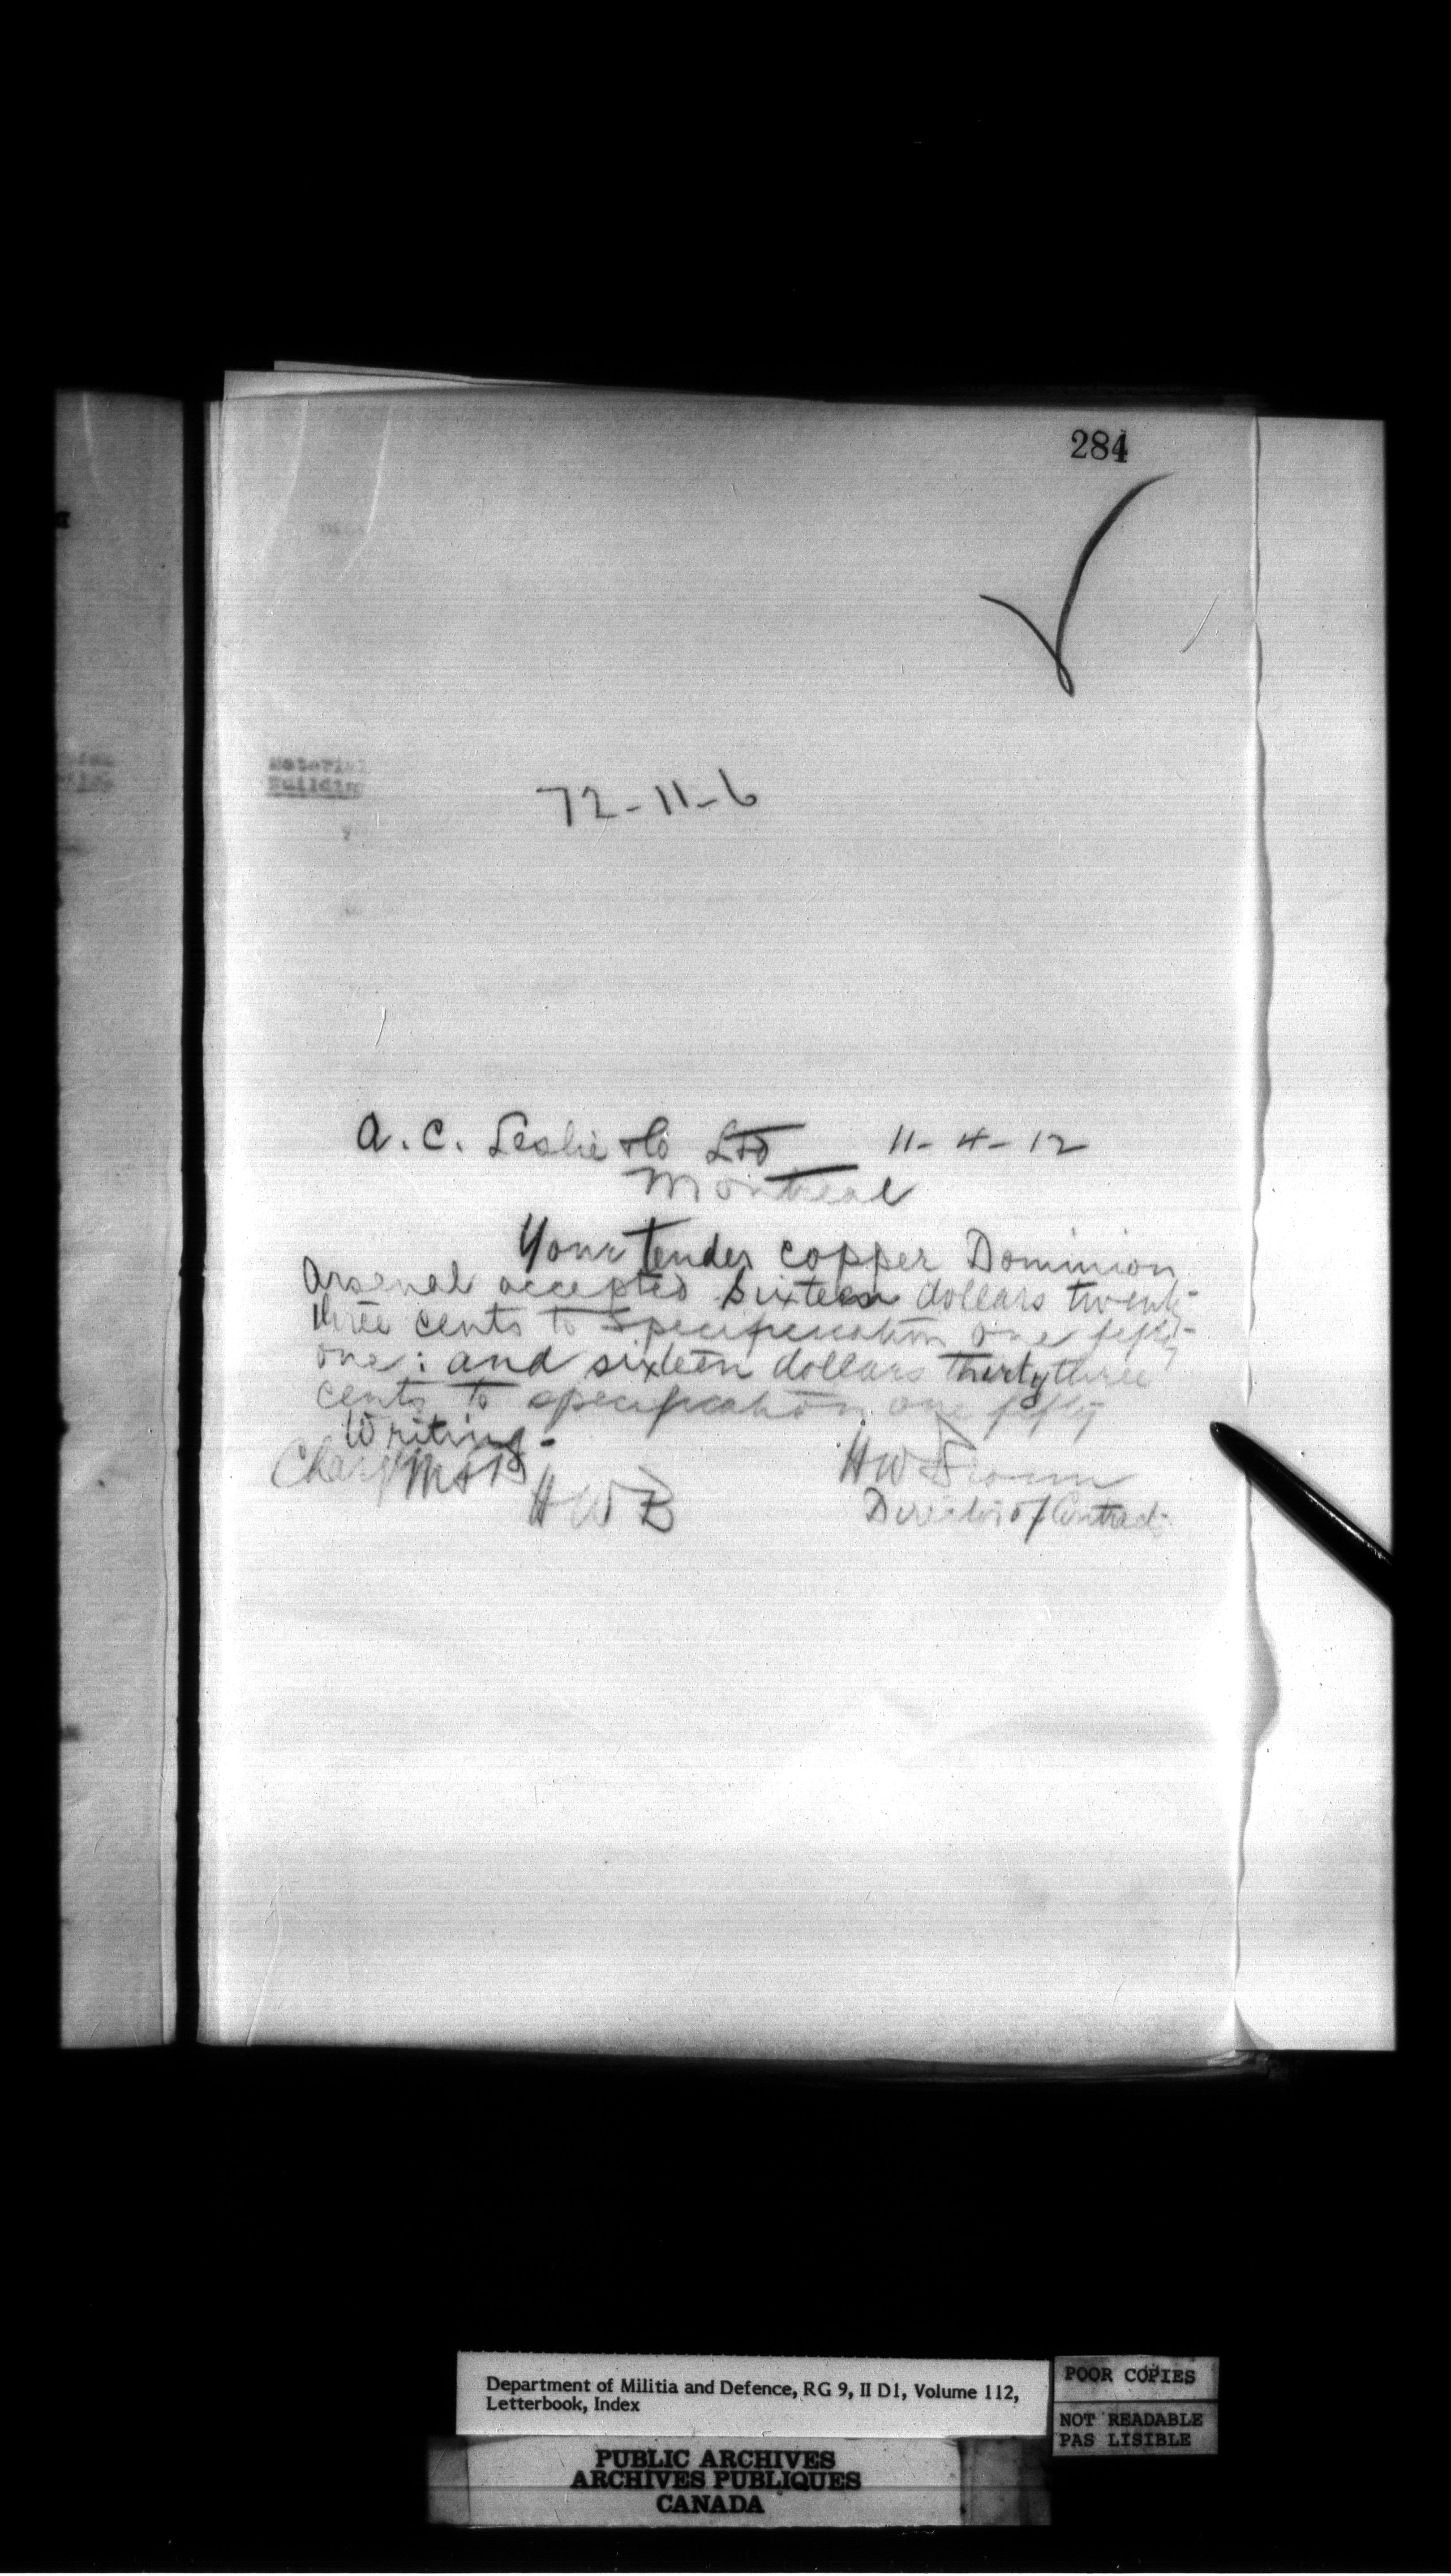 284
Material
Building
72-11-6
A. C. Leslie & Co Ltd 11-4-12
Montreal
Your tender copper Dominion
Arsenal accepted sixteen dollars twenty-
three cents to specification one fifty-
one: and sixteen dollars thirty three
cents to specification one fifty
Writing-
Charge M & D
HWB
HW Brown
Director of Contracts
Department of Militia and Defence, RG 9, II D1, Volume 112,
Letterbook, Index
POOR COPIES
NOT READABLE
PAS LISIBLE
PUBLIC ARCHIVES
ARCHIVES PUBLIQUES
CANADA